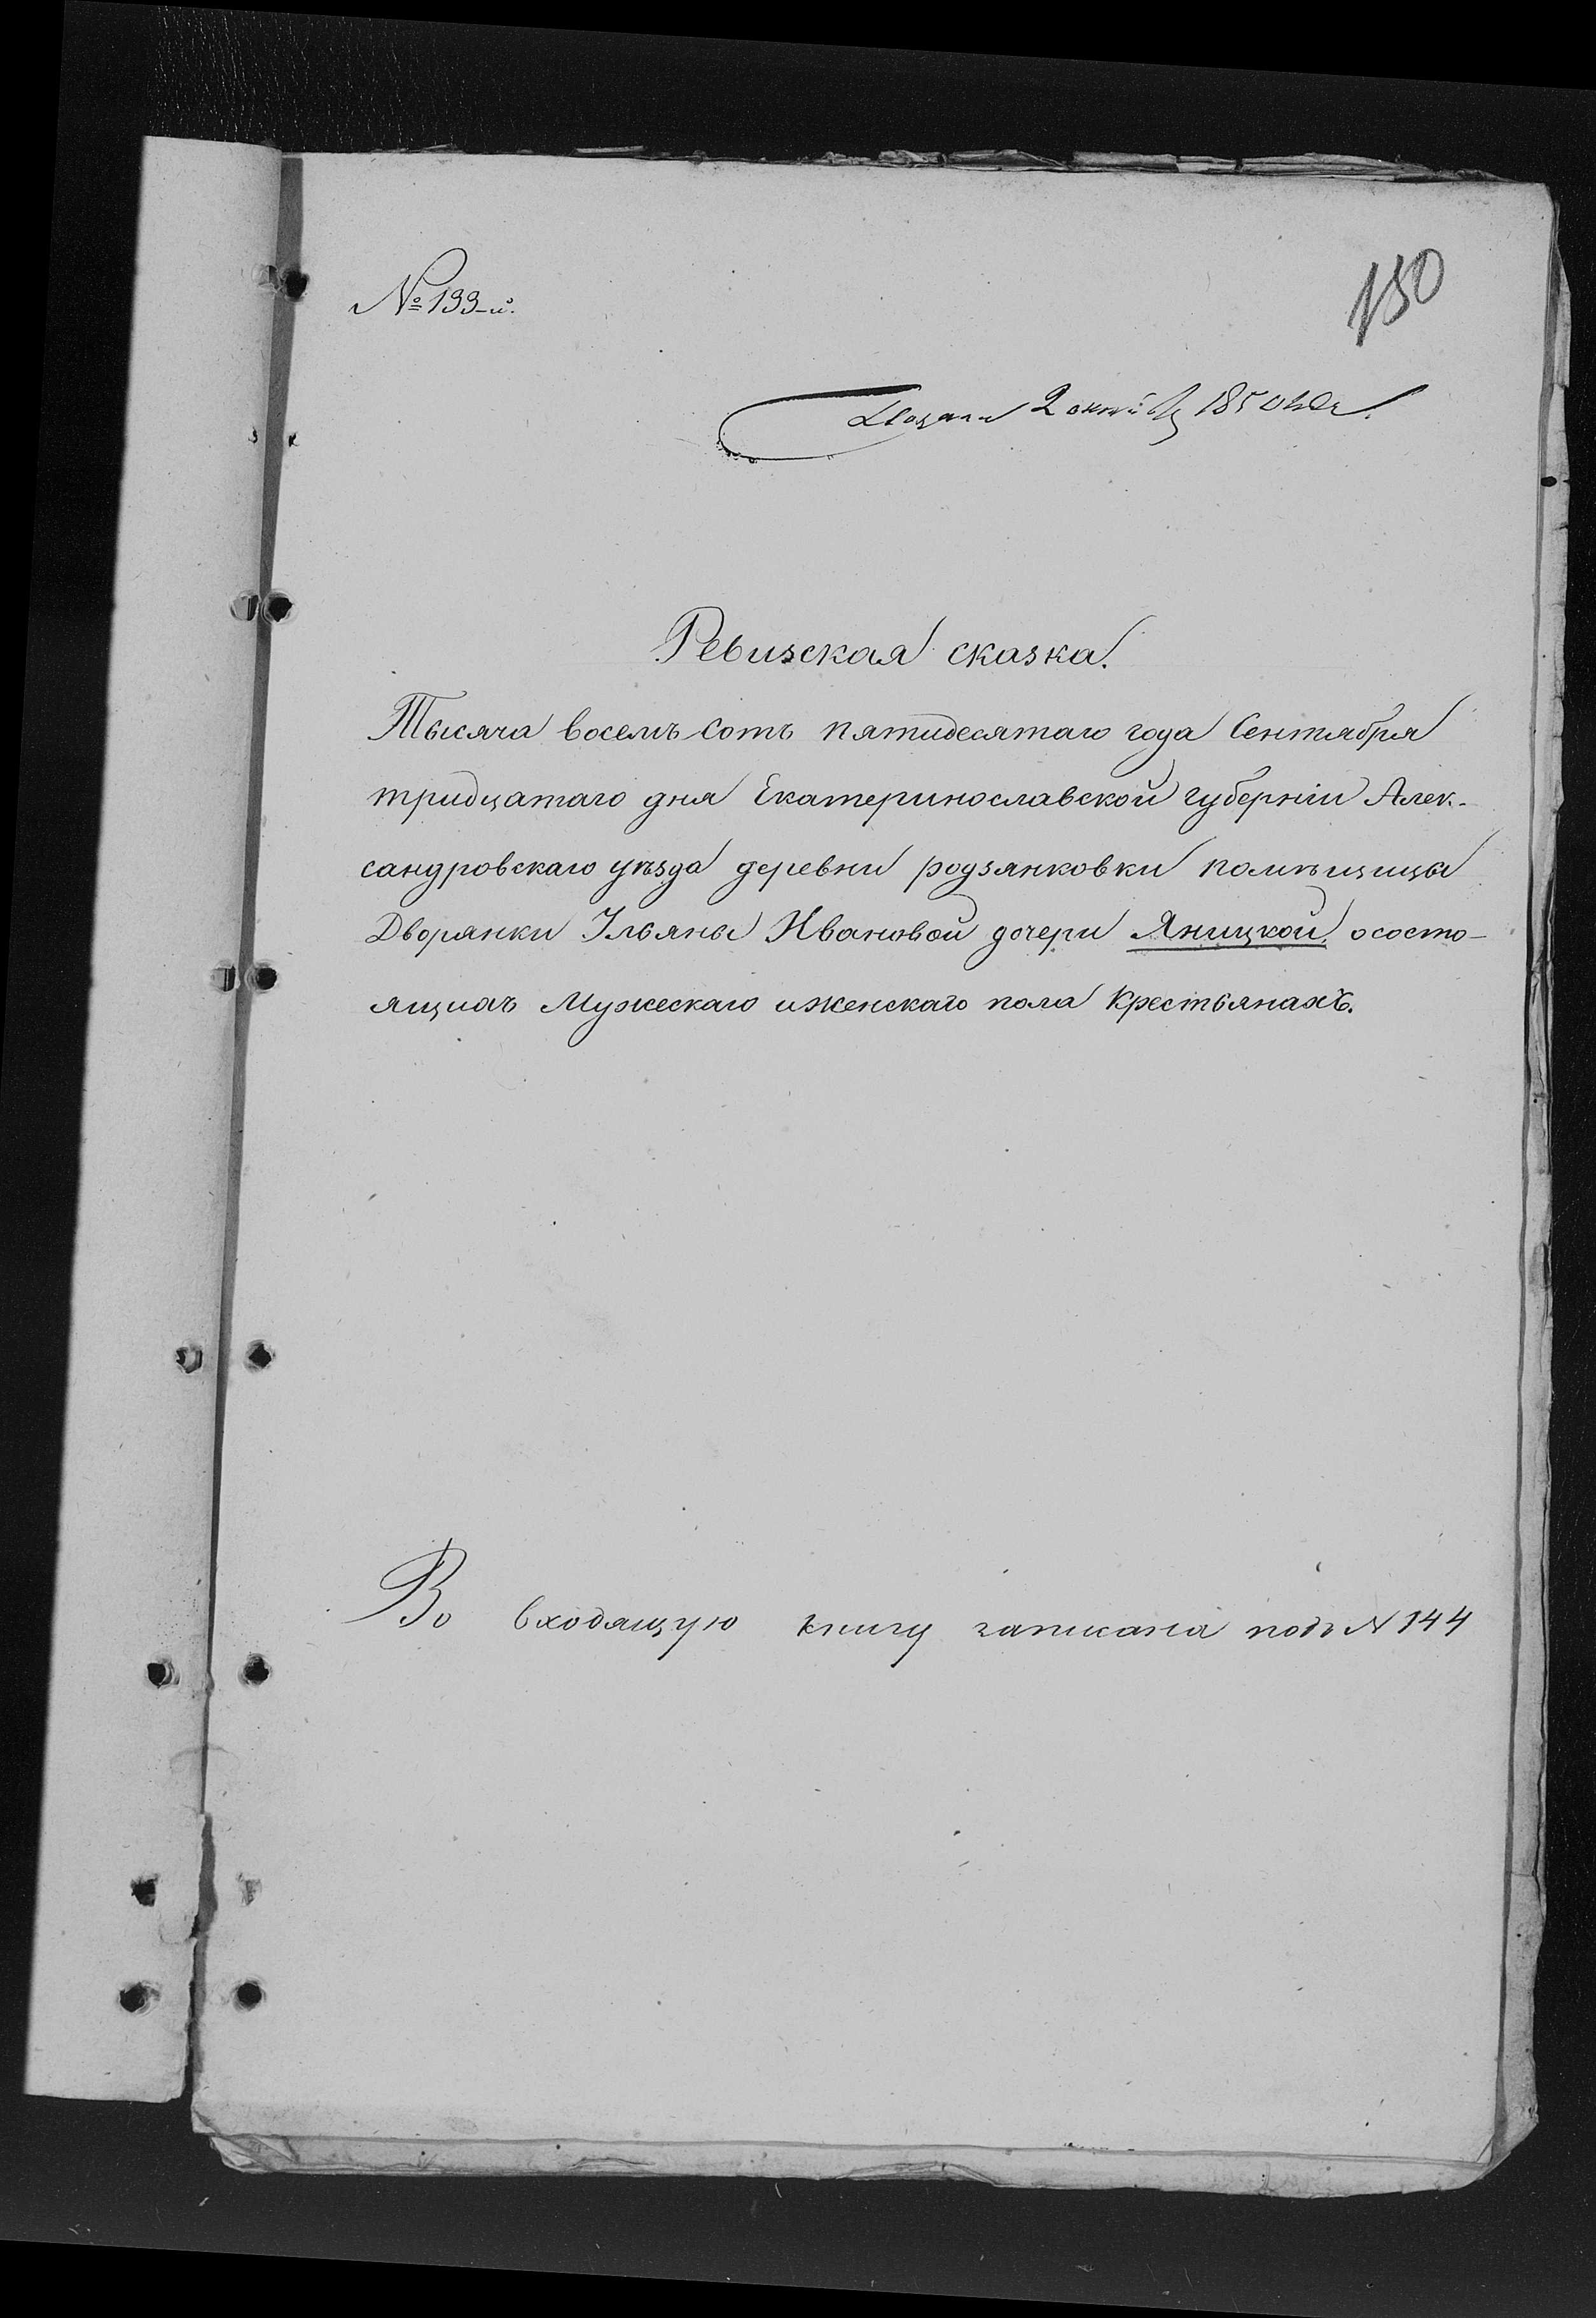 № 133-й.
150
Подана 2 октября 1850 года.
Ревизская сказка.
Тысяча восемь сотъ пятидесятаго года Сентября
тридцатаго дня Екатеринославской губерніи Алек-
сандровскаго уѣзда деревни родзянковки помѣщицы
Дворянки Ульяны Ивановой дочери Яницкой, ососто-
ящихъ Мужескаго иженскаго пола Крестьянахъ.
Во входящую книгу записана подъ N 144